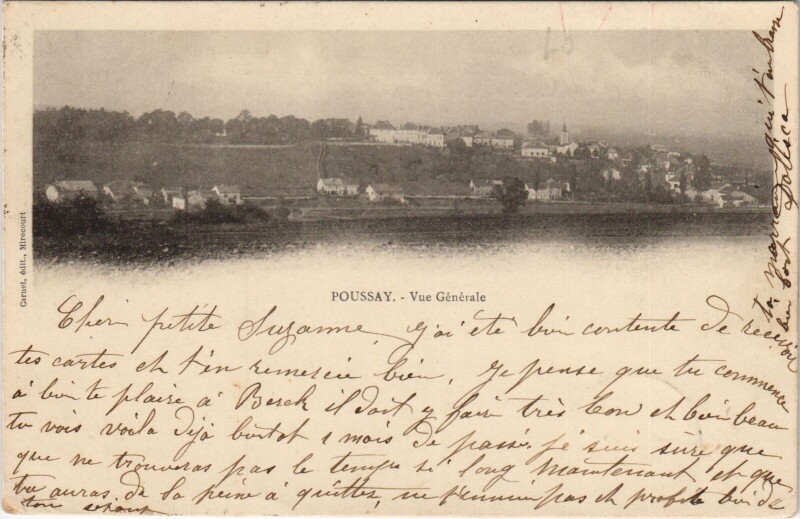 Carnet, édit., Mirecourt
POUSSAY. - Vue Générale
Cheri petite Suzanne, j'ai été bien contente de recevoir
tes cartes et t'en remercie bien. Je pense que tu commence
à bien te plaire à Berck il doit y faire très bon et bien beau
tu vois voila déjà bientot 1 mois de passé. je suis sûre que
que ne trouveras pas le temps si long maintenant et que
tu auras de la peine à quitter, ne t'ennuie pas et profite bien de
ton
ta marraine qui t'embrasse
bien fort